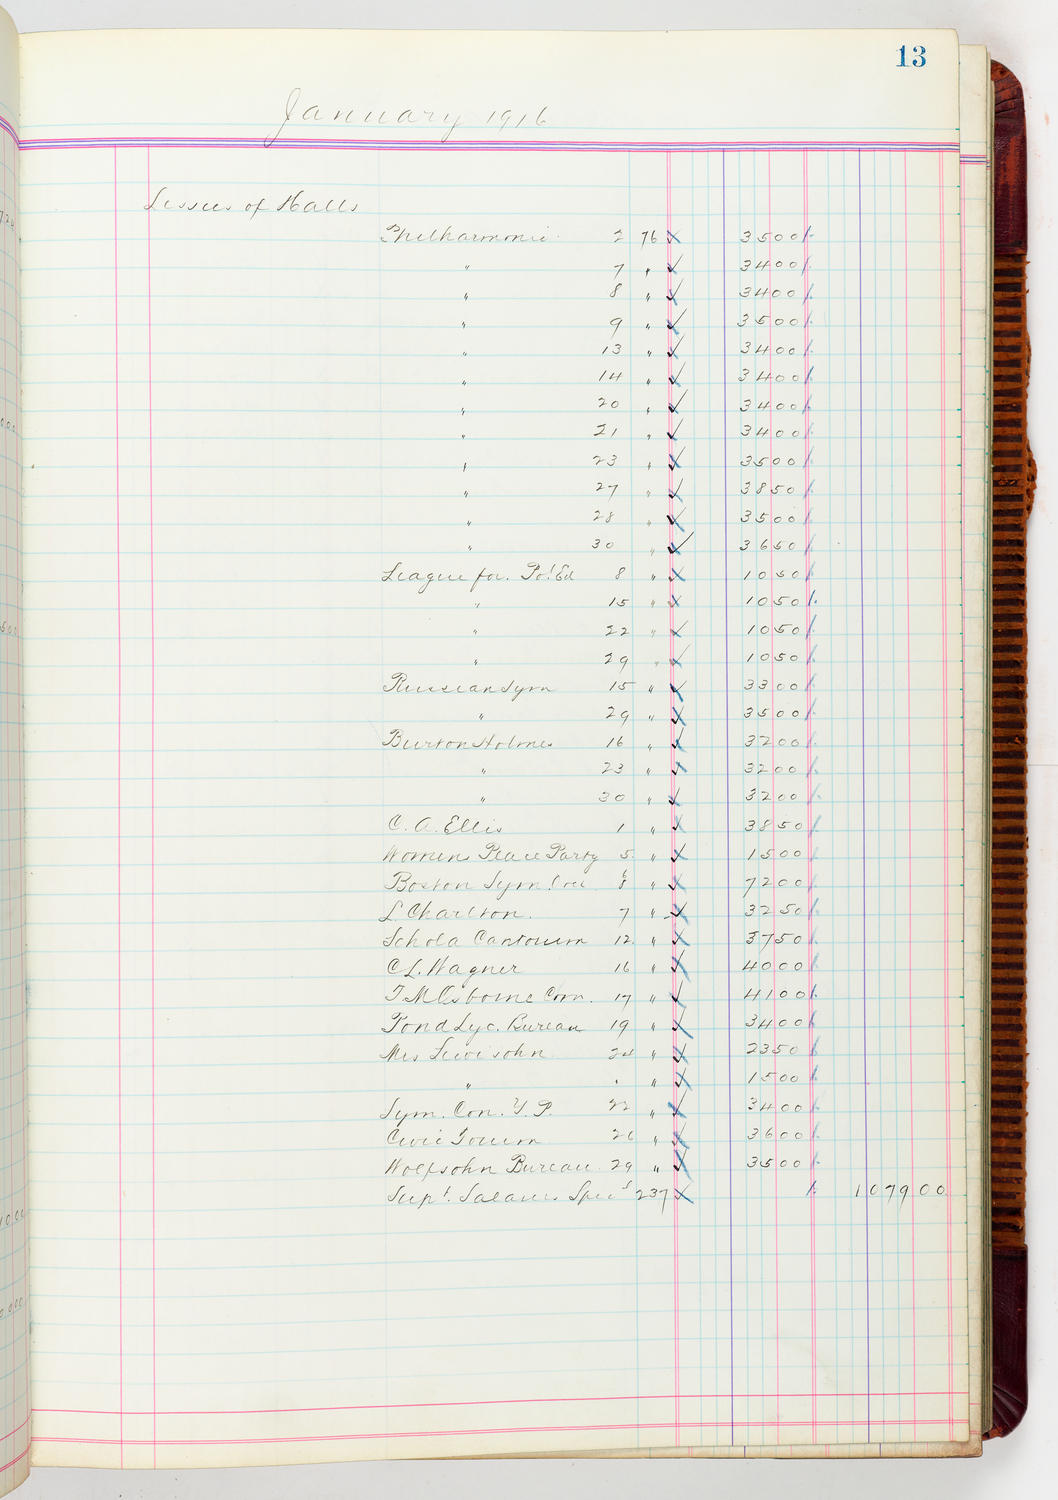 13
January 1916
Lessees of Halls
Philharmonic 2 76 3500
" 7 " 3400
" 8 " 3400
" 9 " 3500
" 13 " 3400
" 14 " 3400
" 20 " 3400
" 21 " 3400
" 23 " 3500
" 27 " 3850
" 28 " 3500
" 30 " 3650
League for. Pol Ed 8 " 1050
" 15 " 1050
" 22 " 1050
" 29 " 1050
Russian Sym 15 " 3300
" 29 " 3500
Burton Holmes 16 " 3200
" 23 " 3200
" 30 " 3200
C. A. Ellis 1 " 3850
Womens Peace Party 5 " 1500
Boston Sym. 6 8 " 7200
L Charlton. 7 " 3250
Schola Cantorum 12. " 3750
C L. Wagner 16 " 4000
T. M. Osborne Com. 17 " 4100
Pond Lyc. Bureau 19 " 3400
Mrs Lewisohn 24 " 2350
" " " 1500
Sym. Con. Y. P. 22 " 3400
Civic Forum 26 " 3600
Wolfsohn Bureau. 29 " 3500
Supt. Salaries Specs 237 107900